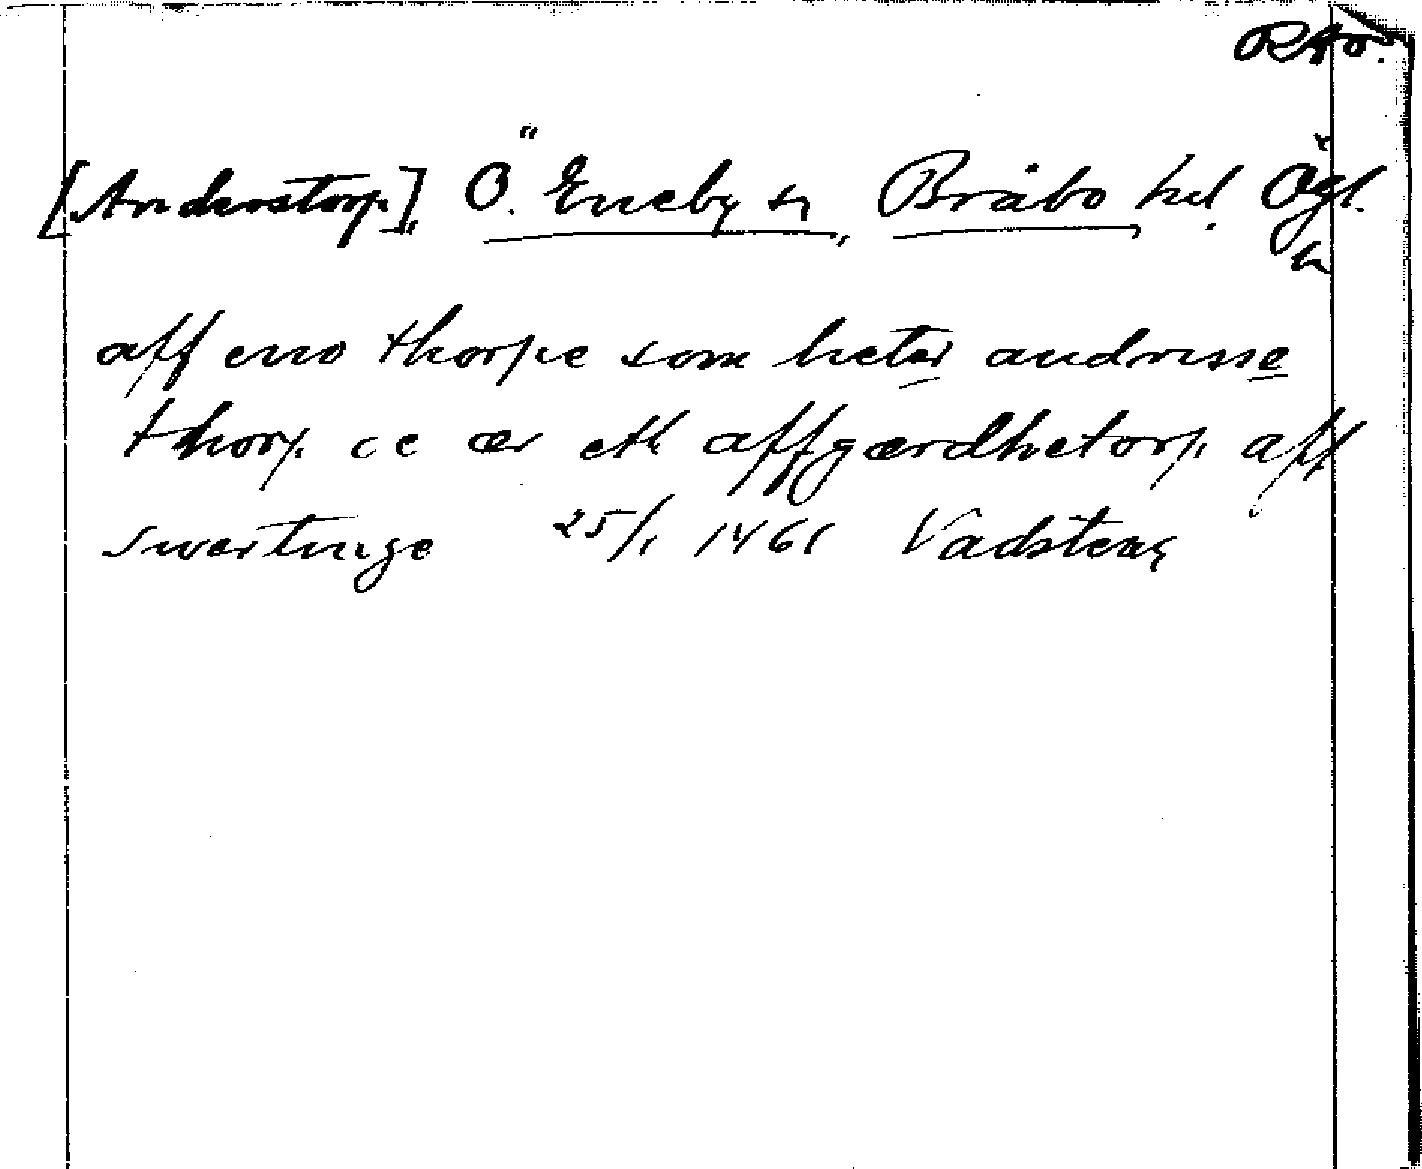 RAO.
[Anderstorp], Ö. Eneby sn, Bråbo hd. Ögl.
aff eno thorpe som heter andresse
thorp oc ær eth affgærdhetorp aff
swertinge 25/1 1461 Vadstena